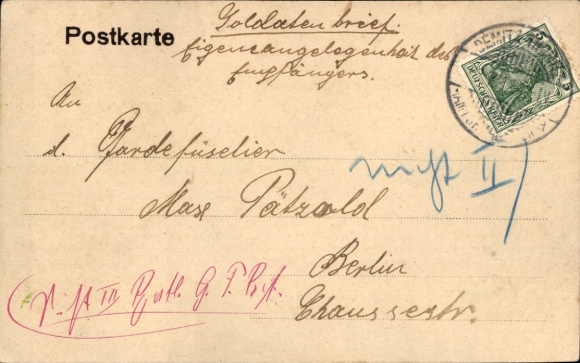 Postkarte
Soldatenbrief.
Eigene Angelegenheit des
Empfängers.
An
d. Gardefüselier
Max Pätzold
nicht II
Berlin
Chausseestr.
III